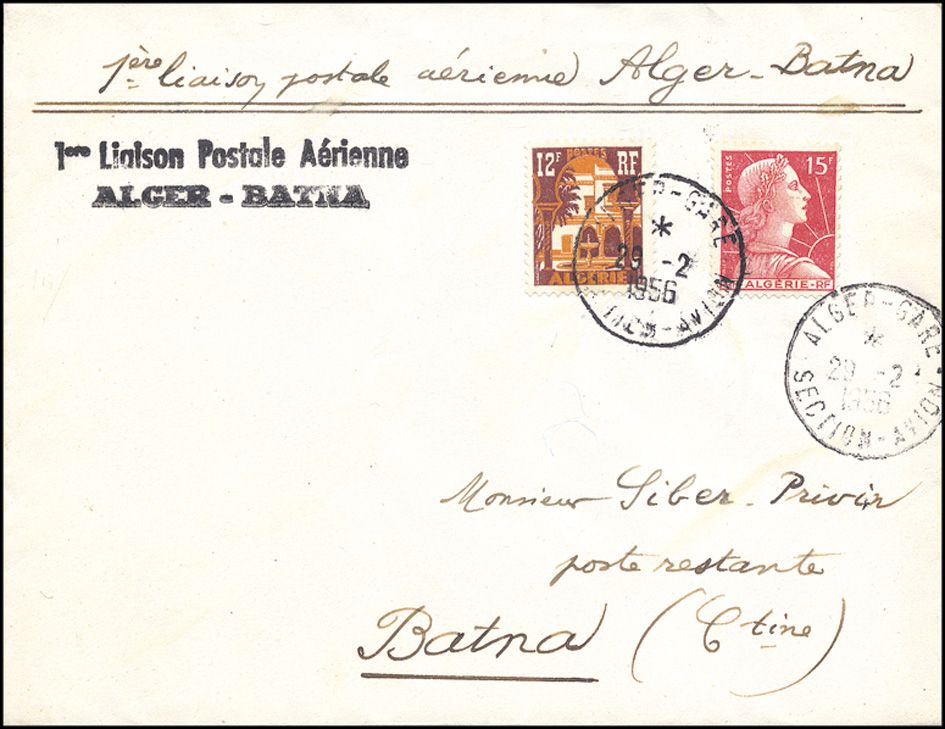 1ère liaison postale aérienne Alger-Batna
1ere Liaison Postale Aérienne
ALGER - BATNA
12F POSTES RF
ALGERIE
POSTES 15F
ALGÉRIE-RF
ALGER-GARE
*
29 -2
1956
SECTION-AVION
ALGER-GARE
*
29 -2
1956
SECTION-AVION
Monsieur Siber-Privin
poste restante
Batna (Ctine)